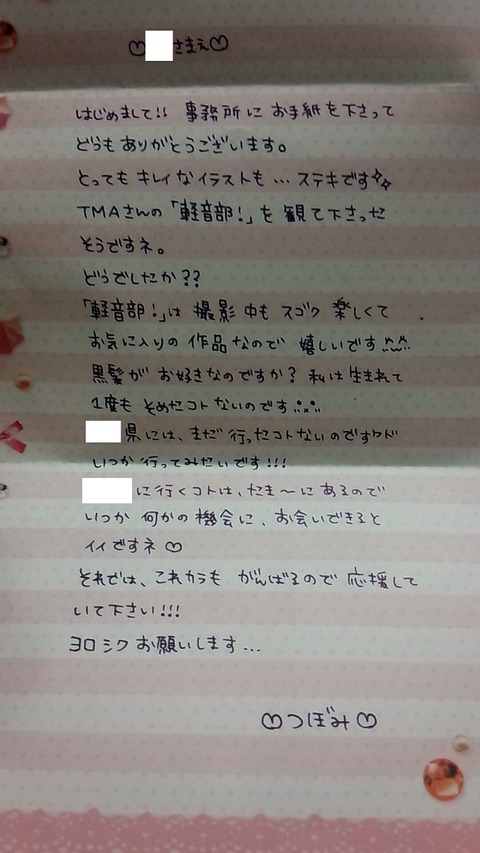 ♡ さまえ♡
はじめまして!! 事務所に お手紙を下さって
どうも ありがとうございます。
とっても キレイなイラストも… ステキです
TMAさんの「軽音部!」を 観て下さった
そうですネ。
どうでしたか??
「軽音部!」は 撮影中も スゴク 楽しくて
お気に入りの 作品なので 嬉しいです
黒髪が お好きなのですか? 私は生まれて
1度も そめたコトないのです
県には、まだ 行ったコトないのですケド
いつか 行ってみたいです!!!
に行くコトは、たま〜に あるので
いつか 何かの機会に、お会いできると
イイですネ♡
それでは、これカラも がんばるので 応援して
いて下さい!!!
ヨロシク お願いします…
♡つぼみ♡